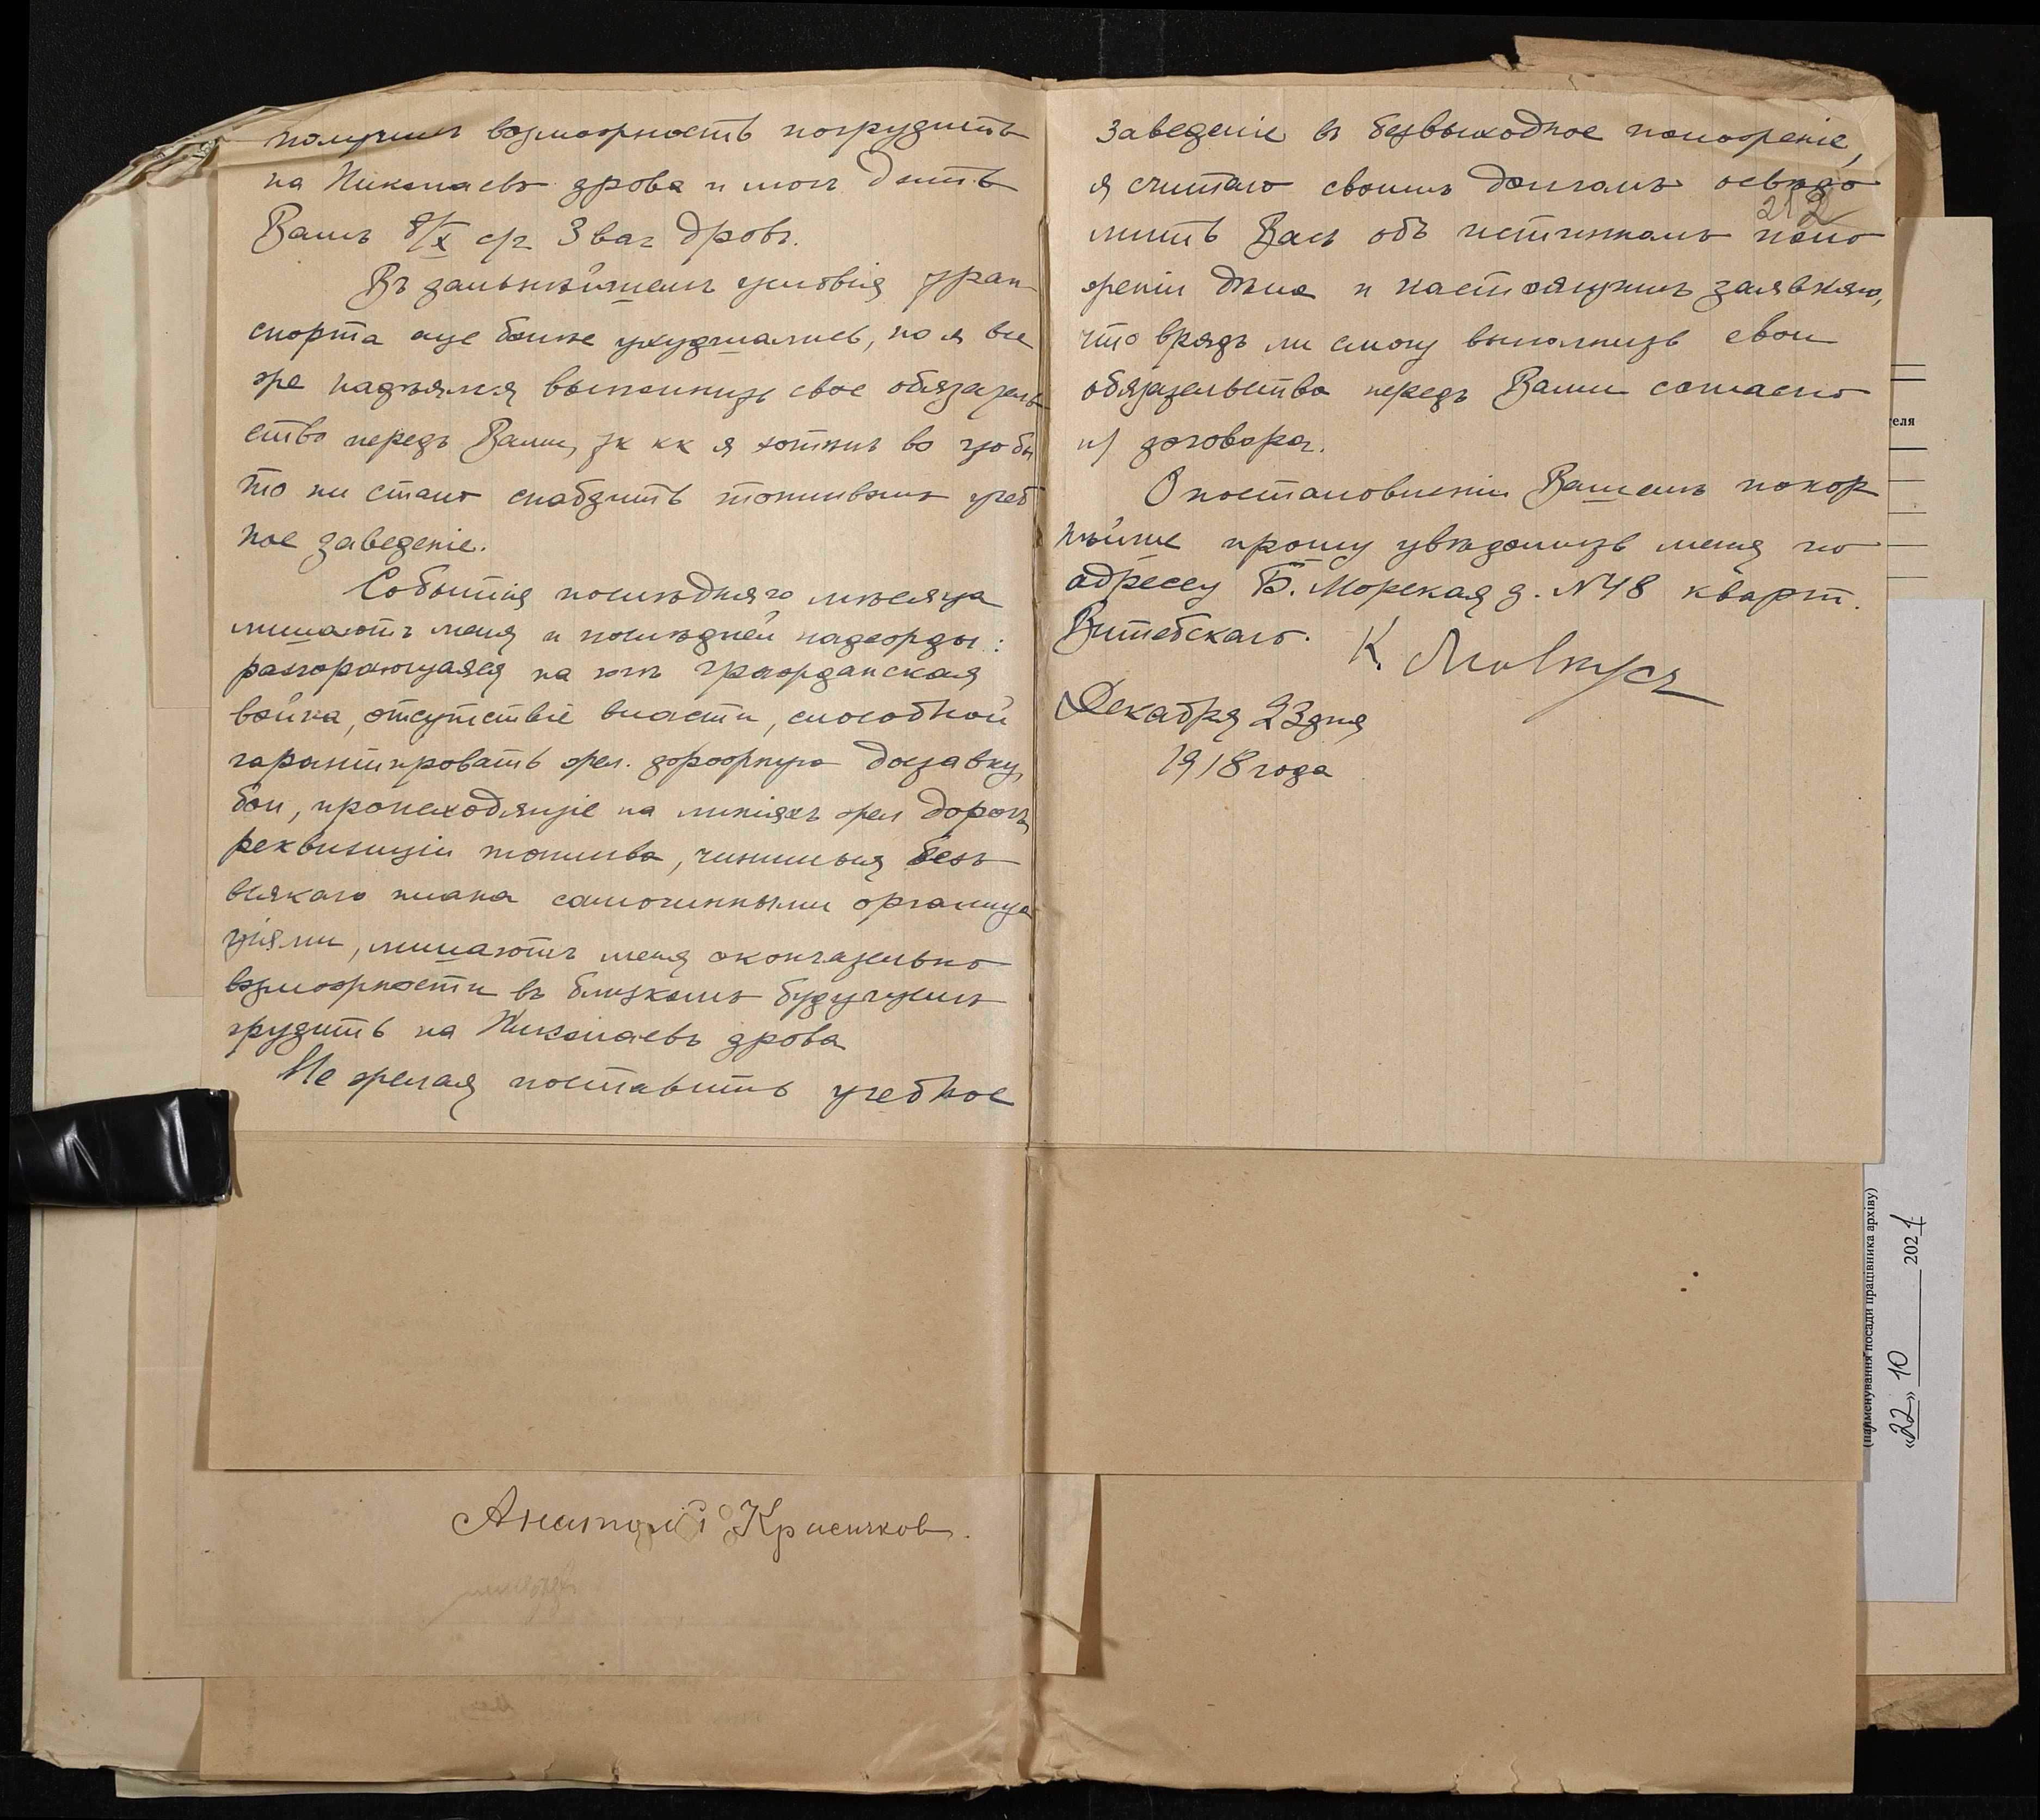 получить возможность погрузить
на Николаевъ дрова и могъ дать
Вамъ 8/X с/г 3 ваг дровъ.
Въ дальнѣйшемъ условія тран
спорта еще болѣе ухудшались, но я все
же надѣялся выполнить свое обязатель
ство передъ Вами, тк кк я хотѣлъ во что бы
то ни стало снабдить топливомъ учеб
ное заведеніе.
Событія послѣдняго мѣсяца
лишаютъ меня и послѣдней надежды:
разгорающаяся на югѣ гражданская
война, отсутствіе власти, способной
гарантировать жел. дорожную доставку,
бои, происходящіе на линіяхъ жел дорогъ,
реквизиціи топлива, чинимыя безъ
всякаго плана самочинными организа
ціями, лишаютъ меня окончательно
возможности въ близкомъ будущемъ
грузить на Николаевъ дрова
Не желая поставить учебное
заведеніе въ безвыходное положеніе,
я считаю своимъ долгомъ освѣдо
212
мить Васъ объ истинномъ поло
женіи дѣла и настоящимъ заявляю,
что врядъ ли смогу выполнить свои
обязательства передъ Вами согласно
договора.
О постановленіи Вашемъ покор
нѣйше прошу увѣдомить меня по
адресу Б. Морская д. №48 кварт.
Витебскаго. К.
Декабря 23 дня
1918 года
Анатолій Красичков.
теля
(найменування посади працівника архіву)
«22» 10 2021